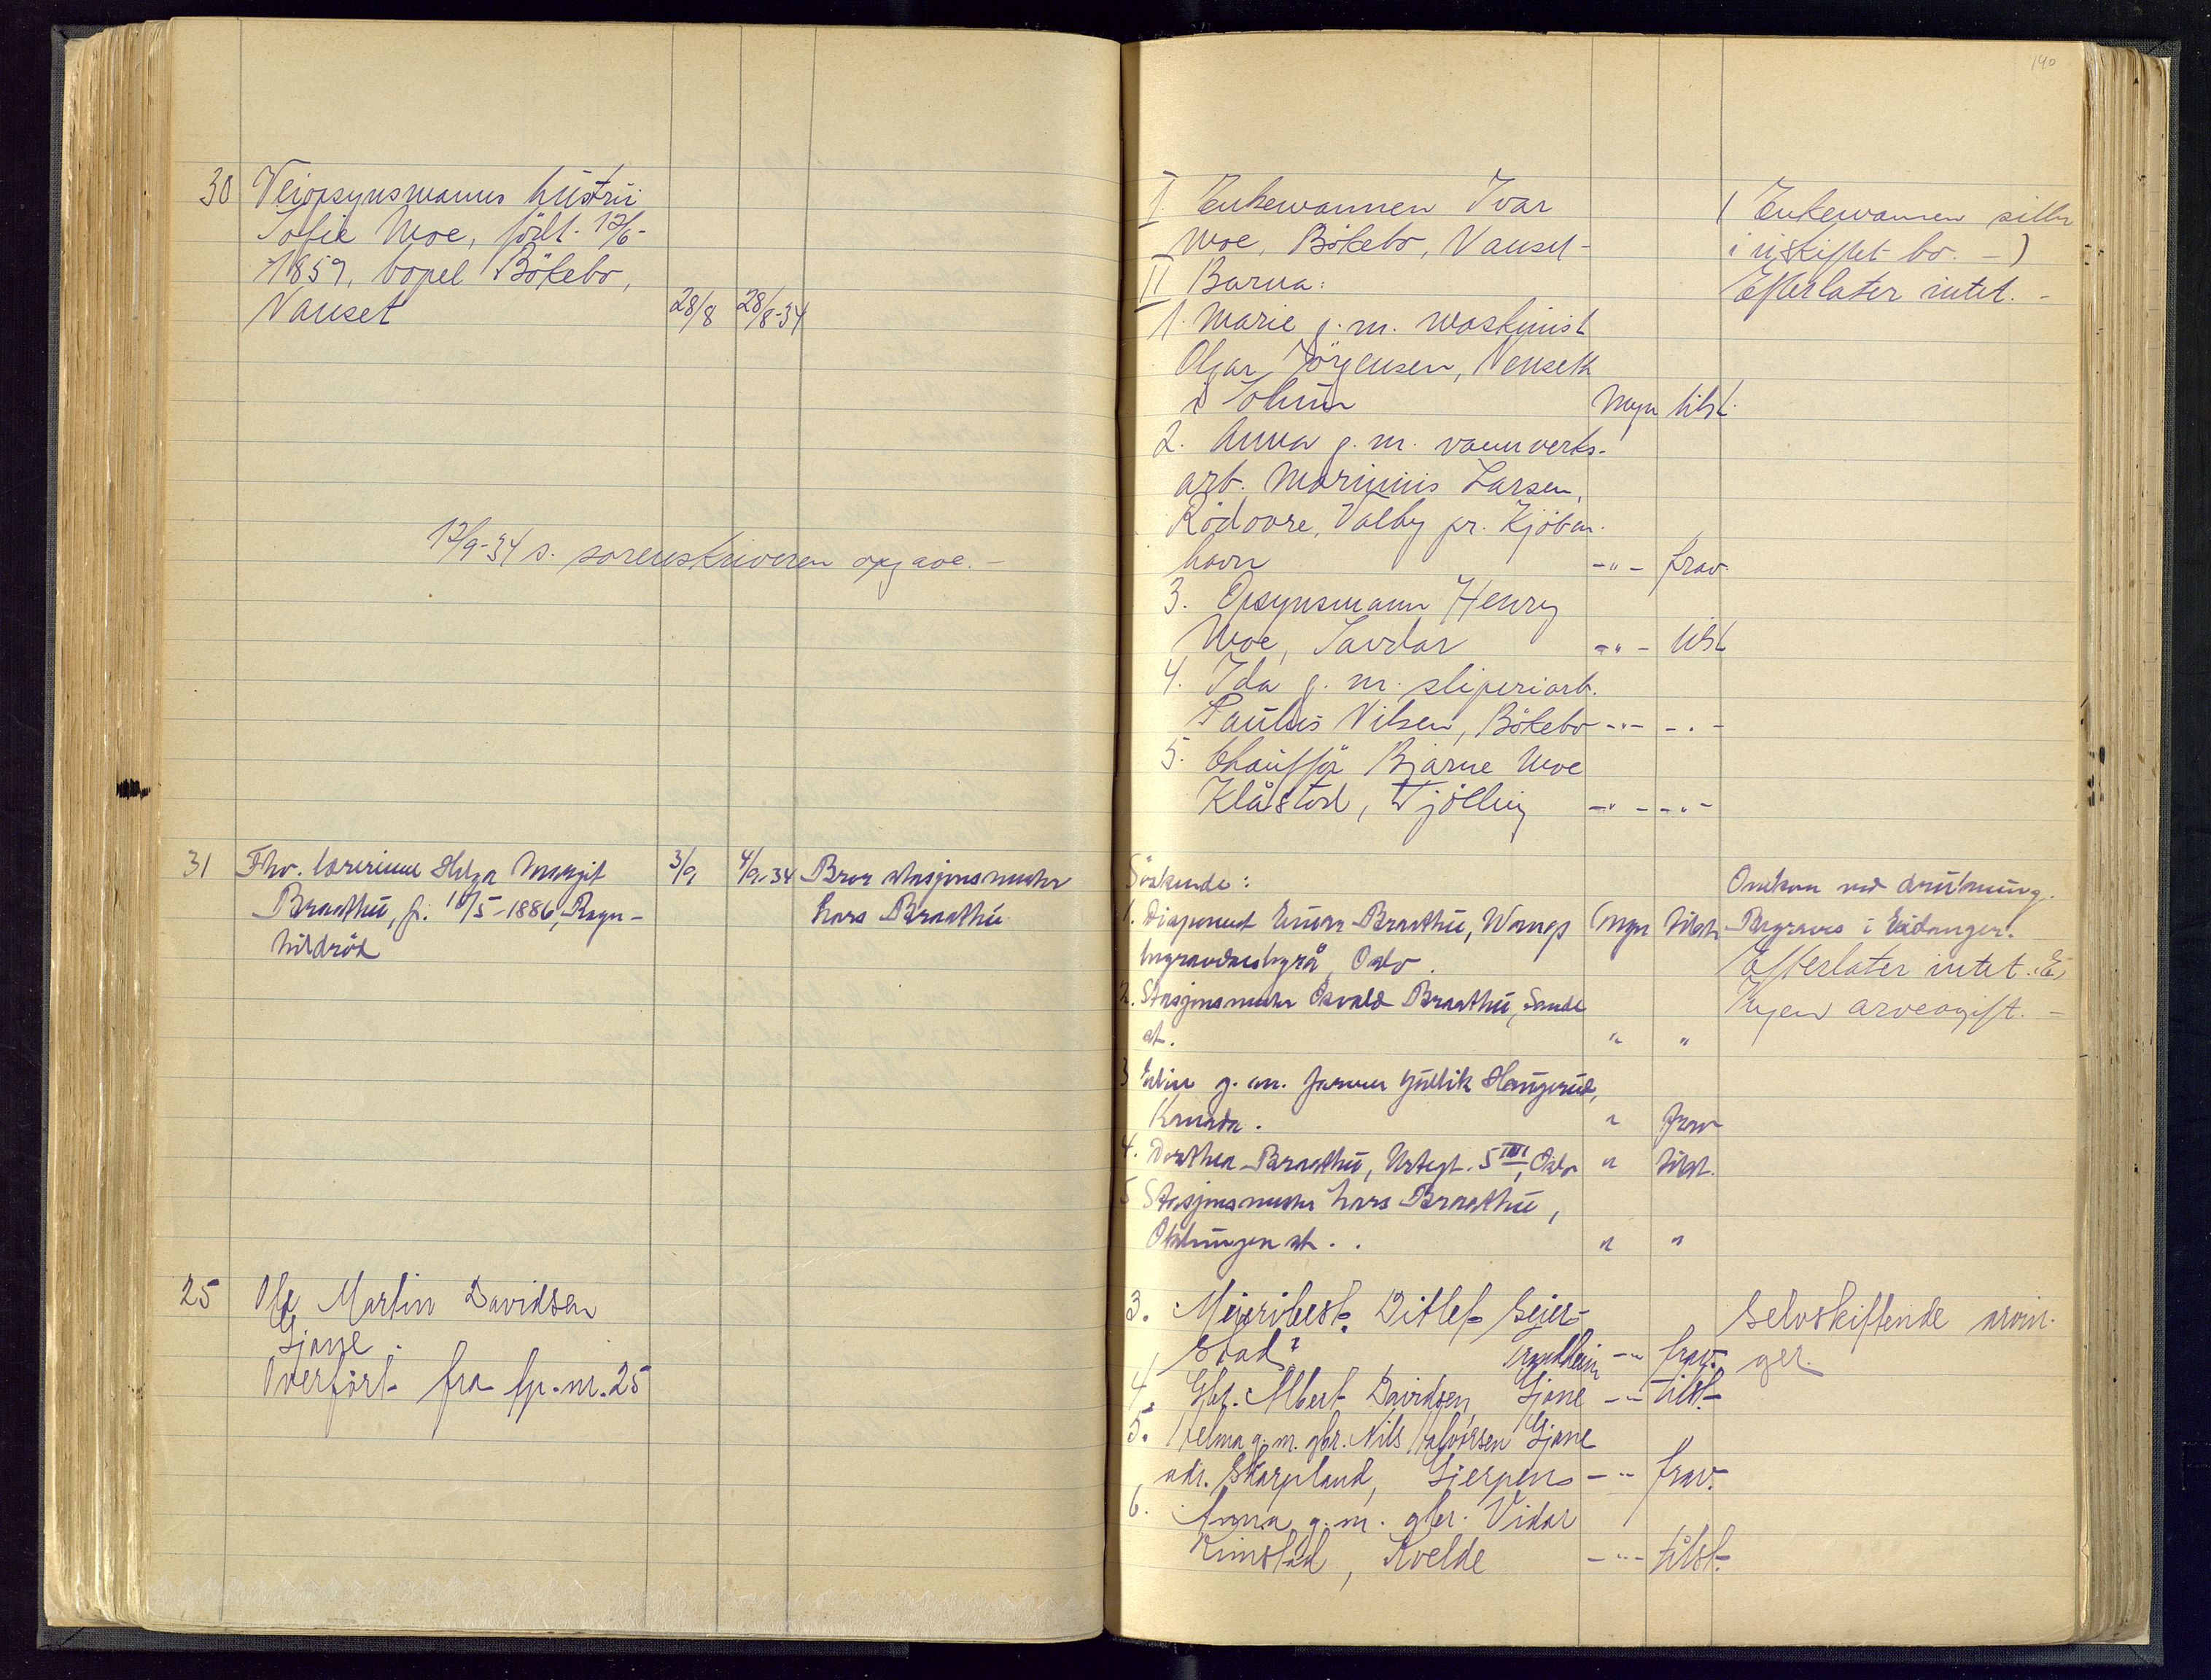 190
30 Veiopsynsmanns hustru
Sofie Moe, födt. 12/6-
1859, bopel Bökebo,
Nanset 28/8 28/8-34
12/9-34 s. sorenskriveren opgave. -
I. Enkemannen Ivar
Moe, Bökebo, Nanset -
II Barna:
1. Marie g. m. maskinist
Olgar Jörgensen, Nanseth
i Solum Myn tilst.
2. Anna g. m. vannverks-
arb. Marinius Larsen,
Rödovre, Valby pr. Kjöben-
havn -"- frav.
3. Opsynsmann Henry
Moe, Sandar -"- tilst
4. Ida g. m. sliperiarb.
Paulus Nilsen, Bökebo -"- -"-
5. Chaufför Bjarne Moe
Klåstad, Tjölling -"- -"-
( Enkemannen sitter
i uskiftet bo. -)
Efterlater intet. -
31 Fhv. lærerinne Helga Margit
Braathu, f. 10/5-1886, Ragn-
hildröd
3/9 4/9-34 Bror stasjonsmester
Lars Braathu
Söskende:
1. Disponent Einar Braathu, Wangs Myn tilst.
begravelsesbyrå, Oslo.
2. Stasjonsmester Osvald Braathu, Sande
st. " "
3 g. m. farmer Gullik Haugerud,
Kanada. " frav
4. Dorthea Braathu, Urtegt. 5 III, Oslo " tilst.
5 Stasjonsmester Lars Braathu,
Oklungen st. . " "
Omkom ved drukning.
Begraves i Eidanger.
Efterlater intet. (E)
Ingen arveavgift. -
25 Ole Martin Davidsen
Gjone.
Overfört fra lp. nr. 25
3. Meieribest. Ditlef Seier-
stad? Trondheim -"- frav.
4. Gbr. Albert Davidsen Gjone -"- tilst.
5. Helma g. m. gbr. Nils Halvorsen Gjone
adr. Skarpland, Gjerpen -"- frav.
6. Anna g. m. gbr. Vidar
Rimstad, Kvelde -"- tilst.
Selvskiftende arvin-
ger.